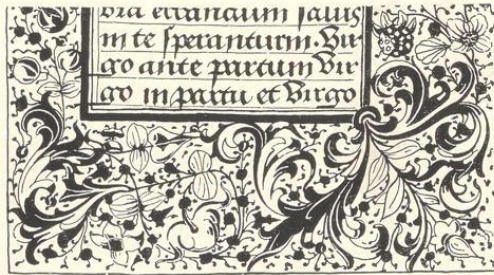 via errantium salus
in te sperantium. Vir
go ante partum Vir
go in partu et Virgo